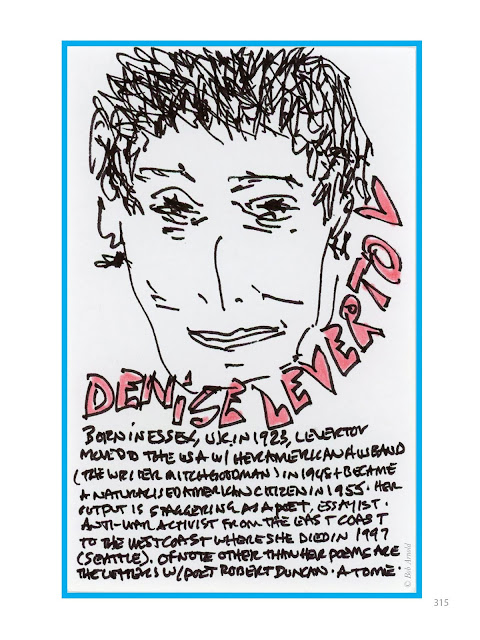 DENISE LEVERTOV
BORN IN ESSEX, U.K. IN 1923, LEVERTOV
MOVED TO THE USA W/ HER AMERICAN HUSBAND
(THE WRITER MITCH GOODMAN) IN 1948 + BECAME
A NATURALISED AMERICAN CITIZEN IN 1955. HER
OUTPUT IS STAGGERING AS A POET, ESSAYIST.
ANTI-WAR ACTIVIST FROM THE EAST COAST
TO THE WEST COAST WHERE SHE DIED IN 1997
(SEATTLE). OF NOTE OTHER THAN HER POEMS ARE
THE LETTERS W/ POET ROBERT DUNCAN. A TOME.
© Bob Arnold
315